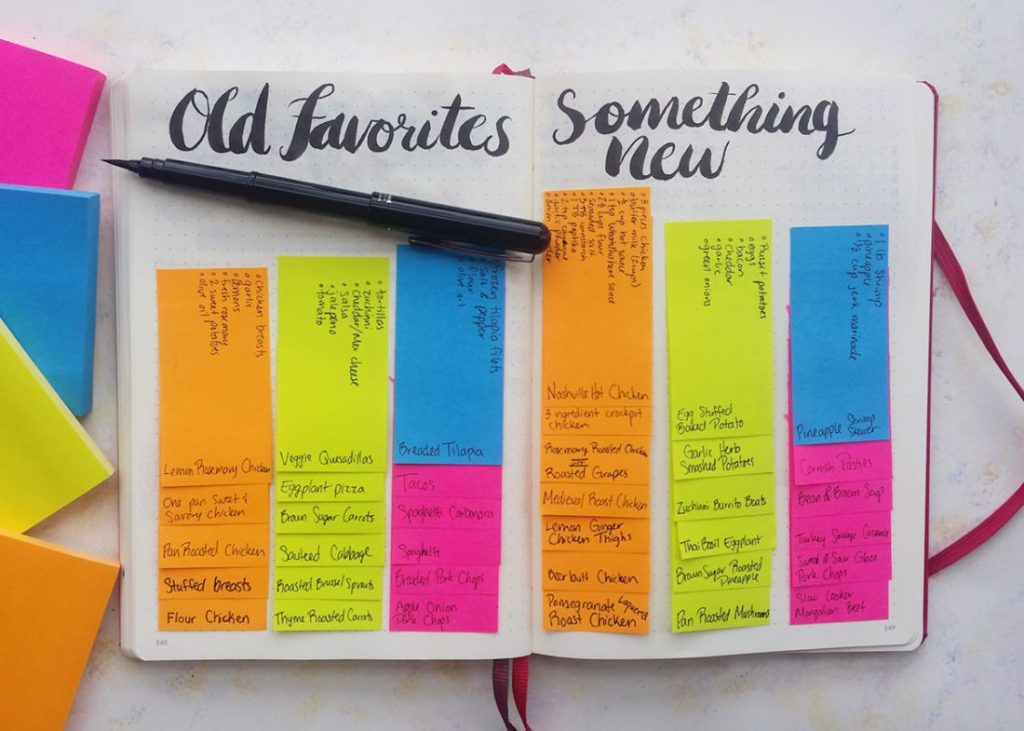 Old Favorites
Chicken breasts
garlic
lemons
fresh rosemary
2 sweet potatoes
olive oil
Lemon Rosemary Chicken
One pan Sweet &
Savory chicken
Pan Roasted Chicken
Stuffed breasts
Flour Chicken
tortillas
zuchinni
Cheddar/Mex cheese
salsa
jalepeno
tomato
Veggie Quesadillas
Eggplant pizza
Braun Sugar Carrots
Sauteed Cabbage
Roasted Brussel Sprouts
Thyme Roasted Carrots
frozen tilapia filets
Salt & pepper
flour
olive oil
Breaded Tilapia
Tacos
Spaghetti Carbonara
Spaghetti
Breaded Pork Chops
Apple Onion
Pork Chops
146
Something
new
8 pieces chicken
butter milk (2 cups)
1/2 cup hot sauce
1 tsp Worchestershire sauce
2 1/2 cups flour
seasoned salt
1 TB paprika
garlic powder
Nashville Hot Chicken
3 ingredient crockpot
chicken
Rosemary Roasted Chicken
Roasted Grapes
Medieval Roast Chicken
Lemon Ginger
Chicken Thighs
Beer butt Chicken
Pomegranate Laquered
Roast Chicken
Russet potatoes
eggs
bacon
cheddar
garlic
green onions
Egg Stuffed
Baked Potato
Garlic Herb
Smashed Potatoes
Zuchinni Burrito Boats
Thai Basil Eggplant
Brown Sugar Roasted
Pineapple
Pan Roasted Mushrooms
1 lb shrimp
pineapple
1/2 cup jerk marinade
Pineapple Shrimp
Skewer
Cornish Pasties
Bean & Bacon Soup
Turkey Sausage Casserole
Sweet & Sour Glaze
Pork Chops
Slow Cooker
Mongolian Beef